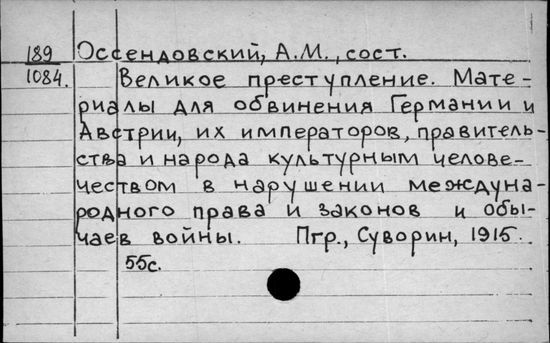 189 Оссендовский, А.М., сост.
1084. Великое преступление. Мате-
риалы для обвинения Германии и
Австрии, их императоров, правитель-
ства и народа культурным челове-
чеством в нарушении междуна-
родного права и законов и обы-
чаев войны. Пгр., Суворин, 1915.
55с.